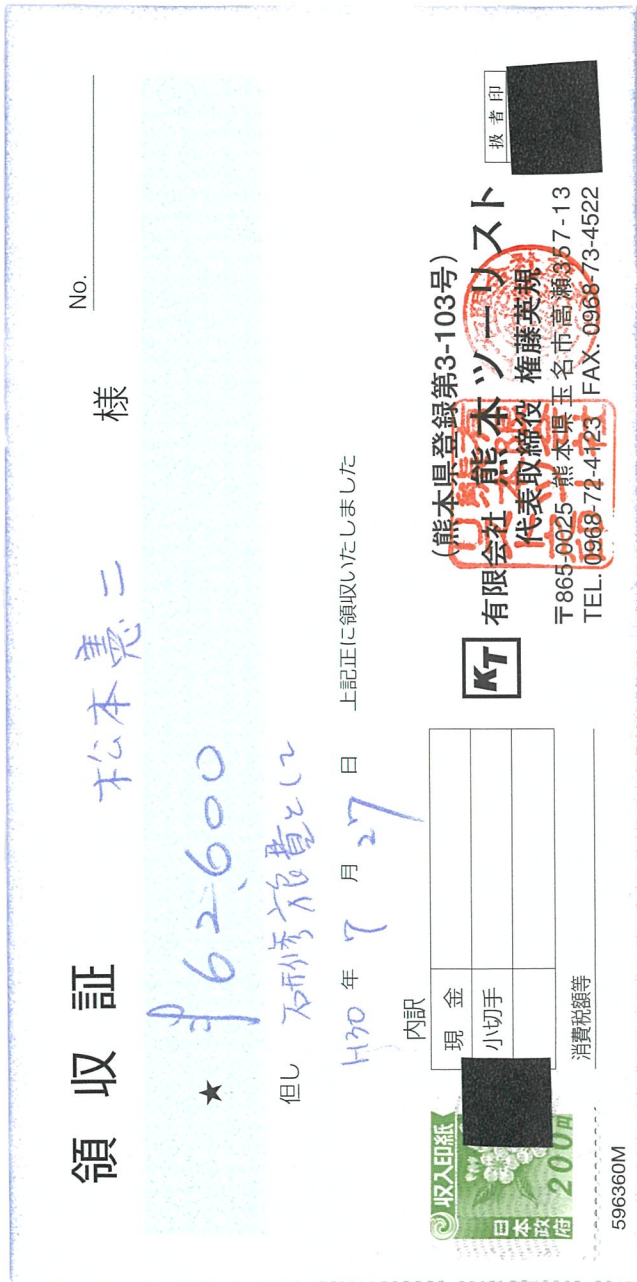 領収証
No.
松本憲二 様
★ ¥62,600
但し 研修旅費として
H30年 7月 27日 上記正に領収いたしました
内訳
現金
小切手
消費税額等
収入印紙
200円
日本政府
596360M
KT
(熊本県登録第3-103号)
有限会社 熊本ツーリスト
代表取締役 権藤英規
〒865-0025 熊本県玉名市高瀬357-13
TEL. 0968-72-4123 FAX. 0968-73-4522
扱者印